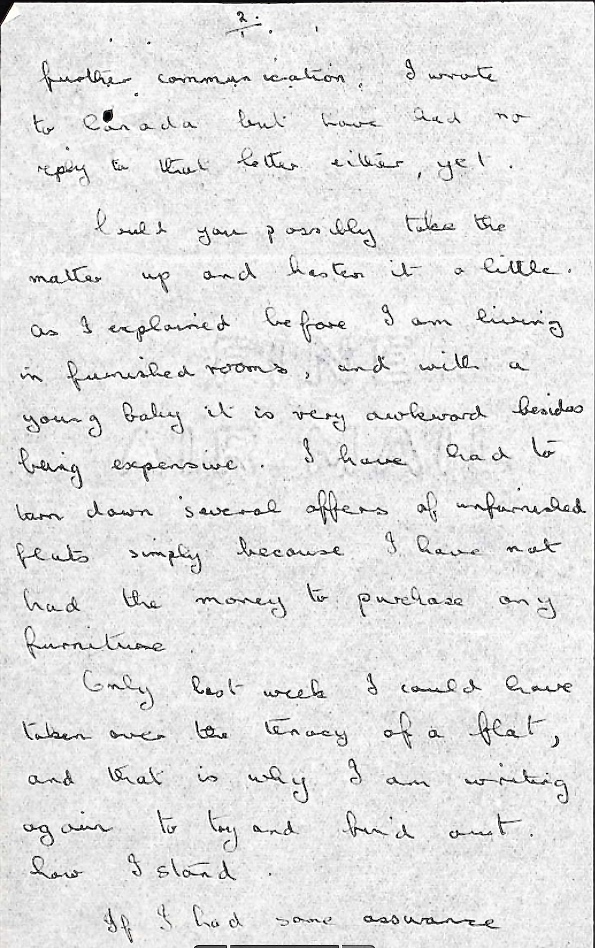 2.
further communication. I wrote
to Canada but have had no
reply to that letter either, yet.
Could you possibly take the
matter up and hasten it a little.
as I explained before I am living
in furnished rooms, and with a
young baby it is very awkward besides
being expensive. I have had to
turn down several offers of unfurnished
flats simply because I have not
had the money to purchase any
furniture
Only last week I could have
taken over the tenacy of a flat,
and that is why I am writing
again to try and find out.
how I stand.
If I had some assurance